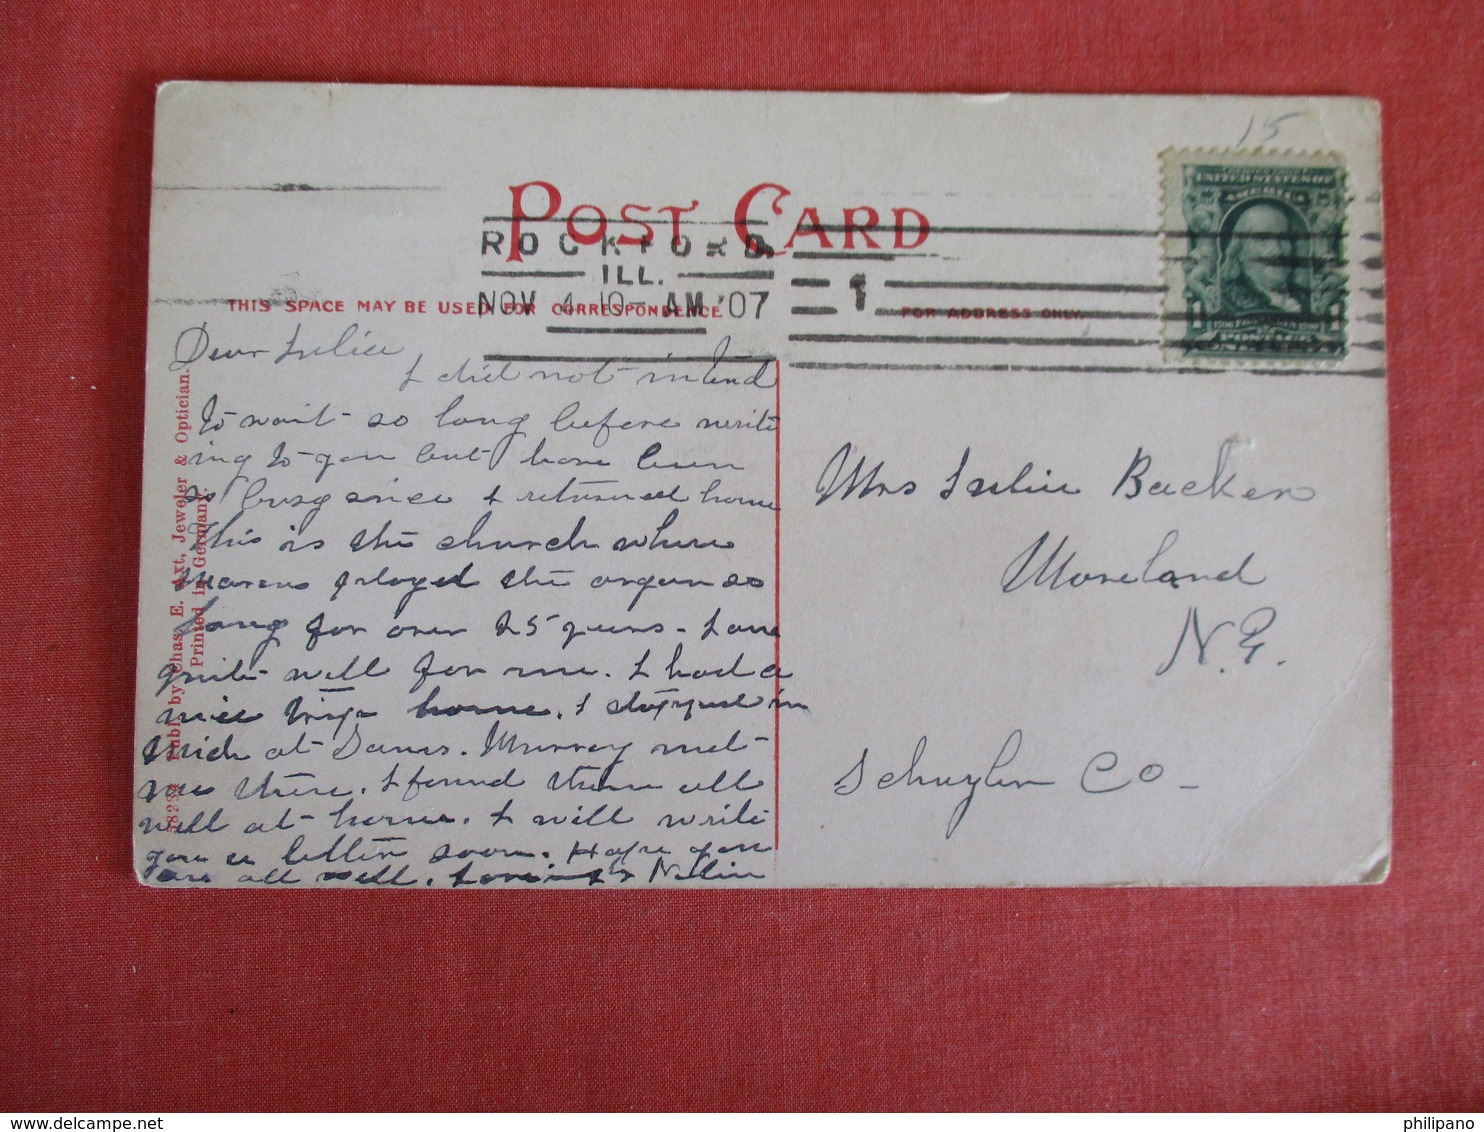 15
POST CARD
ROCKFORD
ILL.
NOV 4 10-AM '07
1
THIS SPACE MAY BE USED FOR CORRESPONDENCE
FOR ADDRESS ONLY.
Dear Julia
I did not intend
to wait so long before writ
ing to you but have been
so busy since I returned home
This is the church where
played the organ so
long for over 25 years - I am
quite well for me. I had a
nice trip home. I stopped in
at . Murray met
me there. I found them all
well at home. I will write
you a letter soon. Hope you
are all well.
Mrs Julia Backer
Moreland
N.Y.
Schuyler Co -
58234 Publ. by Chas. E. Axt, Jeweler & Optician.
Printed in Germany.
philipano